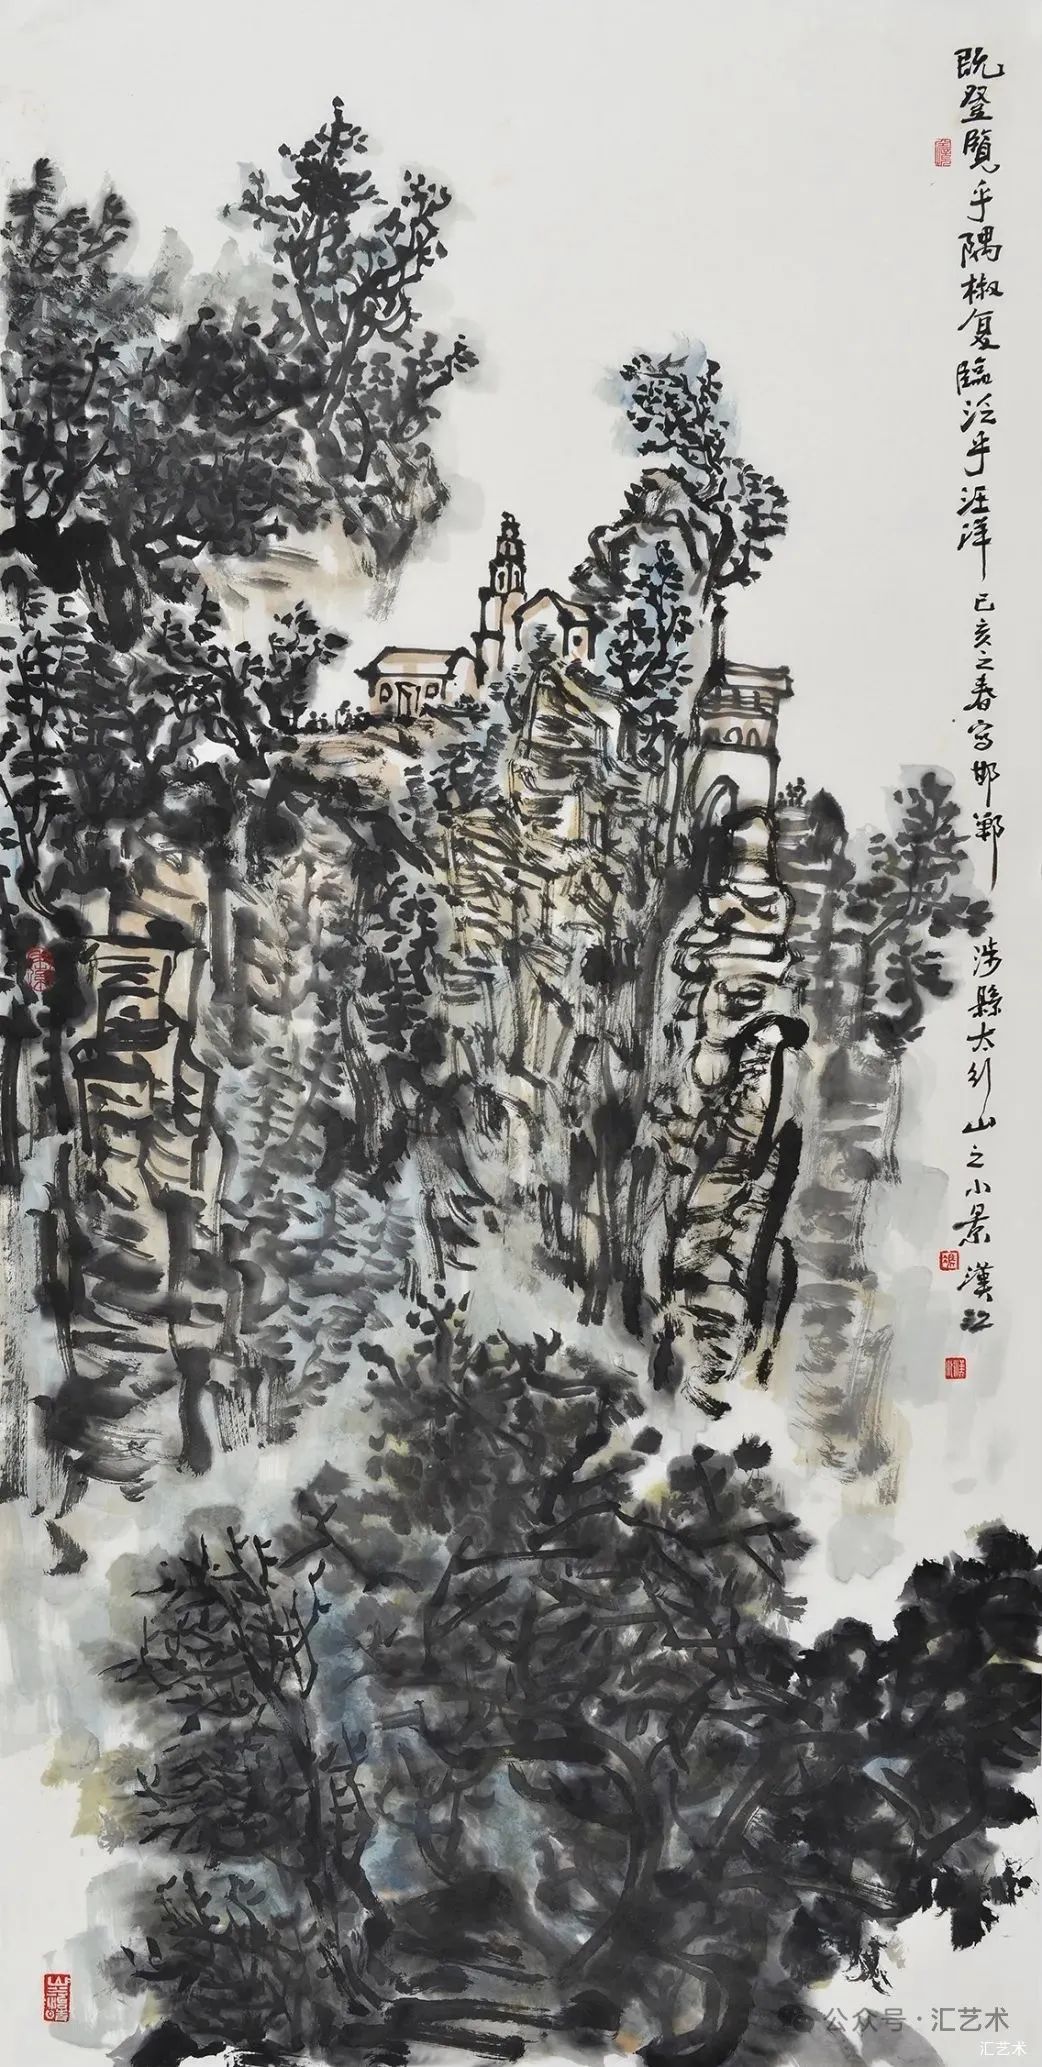 既登览乎隅椒复臨泛乎汪洋 已亥之春写邯鄲 涉縣太行山之小景 漢江
公众号·汇艺术
汇艺术